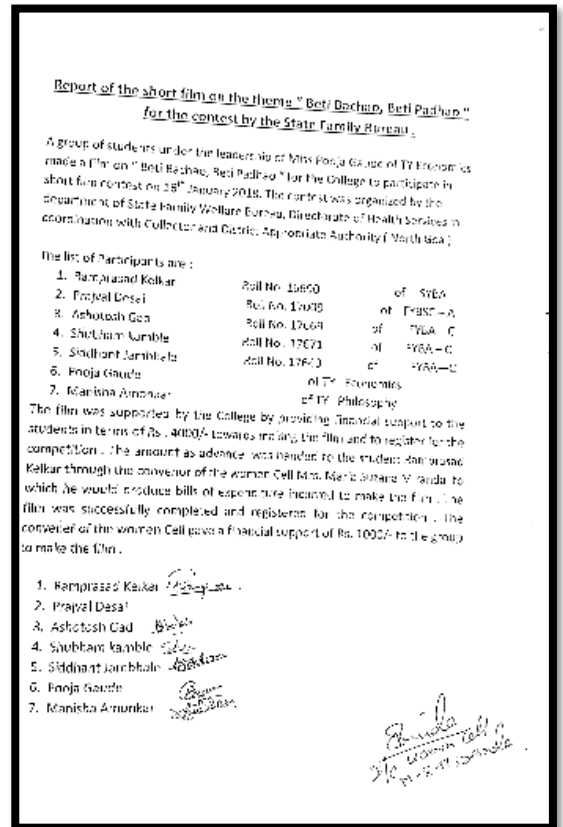 Report of the short film on the theme " Beti Bachao, Beti Padhao "
for the contest by the State Family Bureau .
A group of students under the leadership of Miss Pooja Gaude of TY Economics
made a film on " Beti Bachao, Beti Padhao " for the College to participate in
short film contest on January 2018. The contest was organized by the
department of State Family Welfare Bureau, Directorate of Health Services in
coordination with Collector and District Appropriate Authority ( North Goa )
The list of Participants are :
1. Ramprasad Kelkar Roll No. of SYBA
2. Prajval Desai Roll No. of FYBSC – A
3. Ashotosh Gad Roll No. of FYBA – C
4. Shubham kamble Roll No. 17071 of FYBA – C
5. Siddhant Jambhale Roll No. of FYBA – C
6. Pooja Gaude of TY Economics
7. Manisha Amonkar of TY Philosophy
The film was supported by the College by providing financial support to the
students in terms of Rs . 4000/- towards making the film and to register for the
competition . The amount as advance was handed to the student Ramprasad
Kelkar through the convenor of the women Cell Mrs. Maria Miranda to
which he would produce bills of expenditure incurred to make the film . The
film was successfully completed and registered for the competition . The
convener of the women Cell gave a financial support of Rs. 1000/- to the group
to make the film .
1. Ramprasad Kelkar
2. Prajval Desai
3. Ashotosh Gad
4. Shubham kamble
5. Siddhant Jambhale
6. Pooja Gaude
7. Manisha Amonkar
women cell